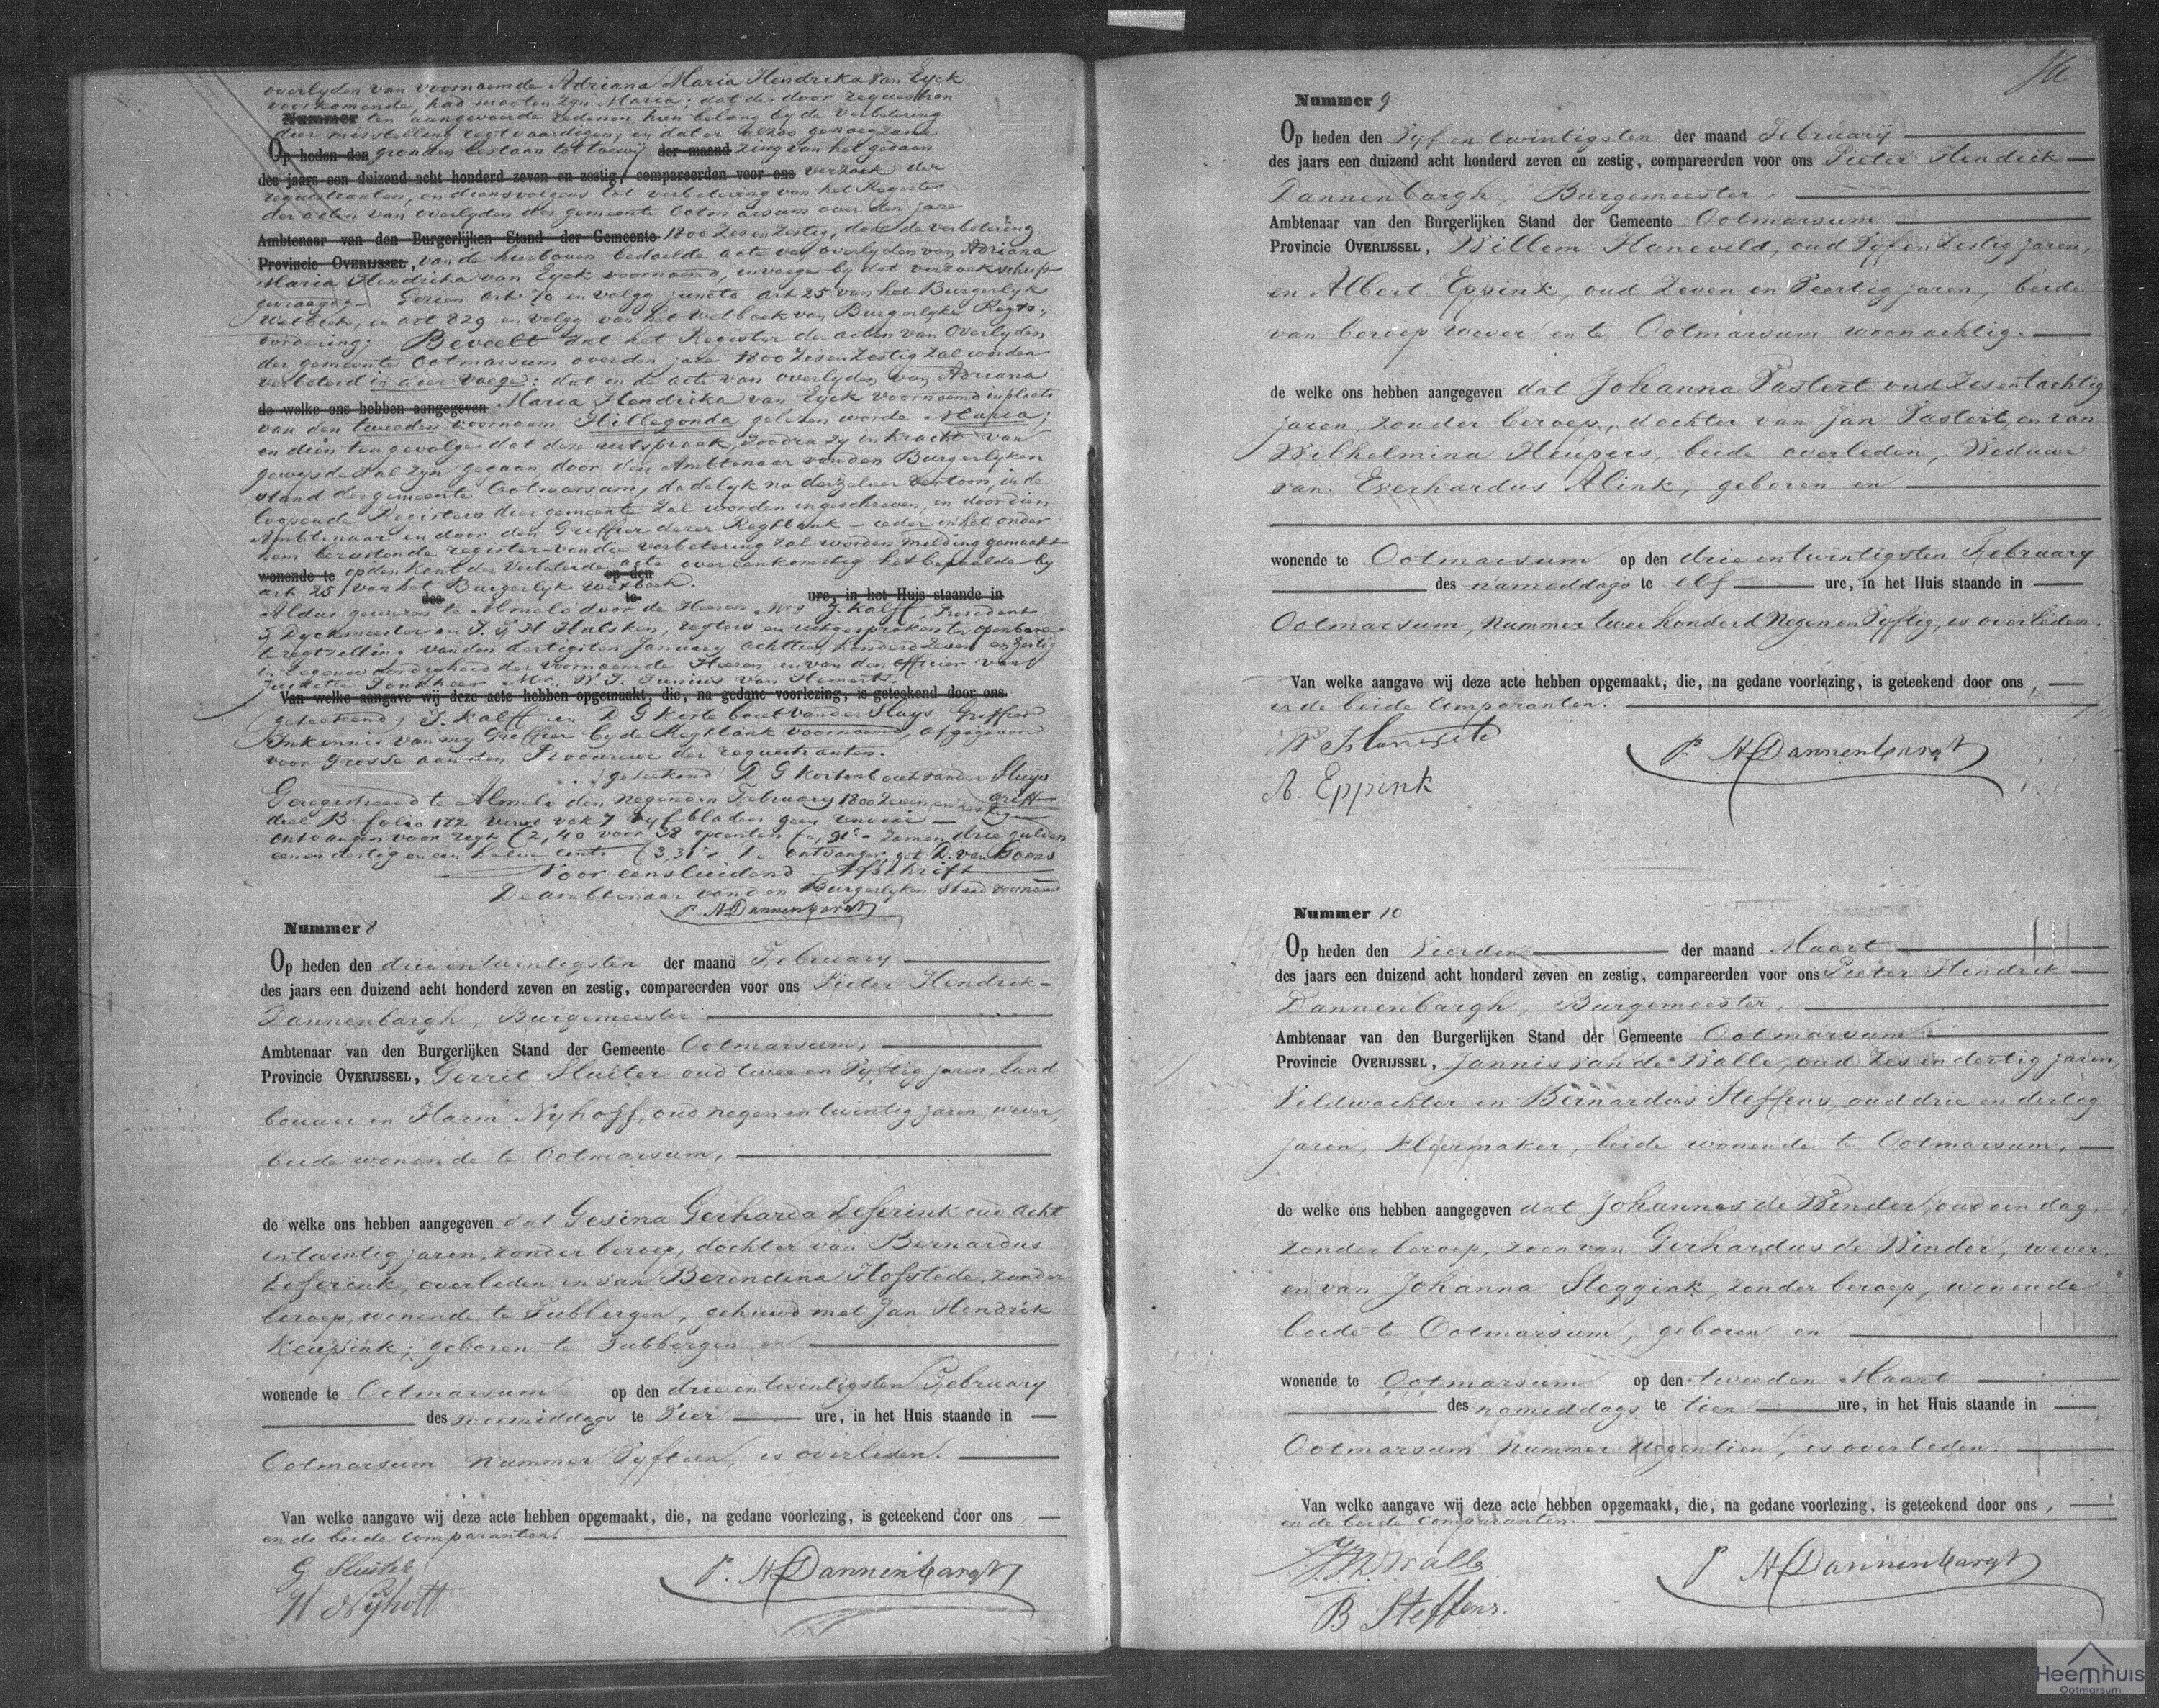 overlyden van voornaemde Adriana Maria Hendrika van Eyck
voorkomende, had moeten zyn Maria; dat de door requestran
Nummer ten aangevoerde redenen, hun belang by de verbetering
dier misstelling regtvaardigen, en dat er alzoo genoegzame
Op heden den gronden bestaan tot toewij der maand zing van het gedaan
des jaars een duizend acht honderd zeven en zestig, compareerden voor ons verzoek der
requestranten, en diensvolgens tot verbetering van het Register
der acten van overlyden der gemeente Ootmarsum over den jare
Ambtenaar van den Burgerlijken Stand der Gemeente 1800 zesenzestig, door de verbetering
Provincie OVERIJSSEL, van de hierboven bedoelde acte van overlyden van Adriana
Maria Hendrika van Eyck voornoemd, invoege by dat verzoekschrift
gevraagd. Gezien art. 70 en volgg juncto art 25 van het Burgerlyk
Wetboek, en art 829 en volgg van het wetboek van Burgerlyke Regts-
vordering; Beveelt dat het Register der acten van Overlyden
der gemeente Ootmarsum over den jare 1800 zesenzestig zal worden
verbeterd in dier voege: dat in de acte van overlyden van Adriana
de welke ons hebben aangegeven Maria Hendrika van Eyck voornoemd in plaats
van den tweeden voornaam Hillegonda gelezen worde Maria;
en dien ten gevolge dat deze uitspraak, zoodra zy in kracht van
gewysde zal zyn gegaan, door den Ambtenaar van den Burgerlyken
stand der gemeente Ootmarsum, dadelyk na derzelver vertoon, in de
loopende Registers dier gemeente zal worden ingeschreven, en door dien
Ambtenaar en door den Griffier dezer Regtbank – ieder in het onder
hem berustende register van die verbetering zal worden melding gemaakt
wonende te op den kant der verbeterde acte overeenkomstig het bepaalde by
op den
art 25 van het Burgerlyk wetboek.
des te ure, in het Huis staande in
Aldus gewezen te Almelo door de Heeren Mrs J. Kalff, President
Dyckmeester en J. G H Halsken, regters en uitgesproken ter openbare
teregtzitting van den dertigsten January achttien honderd zeven en zestig
in tegenwoordigheid der voornoemde Heeren en van den officier van
Justitie Jonkheer Mr. W. J. Junius van Hemert.
Van welke aangave wij deze acte hebben opgemaakt, die, na gedane voorlezing, is geteekend door ons.
(geteekend) J. Kalff en D G Kortebout van der Sluys Griffier
In kennis van my Griffier by de Regtbank voornoemd, afgegeven
voor grosse aan den Procureur der requestranten.
geteekend D G Kortebout van der Sluys
Griffier
Geregistreerd te Almelo den negenden February 1800 zeven en zestig
deel B folio 172 verso vak 7 vyf bladen geen renvooi
ontvangen voor regt f 2,40 voor 38 opcenten f 0,91½ Zamen drie gulden
eenen dertig en een halve cents f 3,31½ De ontvanger get D. van Goens
Voor eensluidend Afschrift
De ambtenaar van den Burgerlyken Stand voornoemd
P. H Dannenbargh
Nummer 8
Op heden den drie en twintigsten der maand February
des jaars een duizend acht honderd zeven en zestig, compareerden voor ons Pieter Hendrik
Dannenbargh, Burgemeester
Ambtenaar van den Burgerlijken Stand der Gemeente Ootmarsum,
Provincie OVERIJSSEL, Gerrit Sluiter oud twee en Vyftig jaren, land
bouwer en Harm Nyhoff, oud negen en twintig jaren, wever,
beide wonende te Ootmarsum,
de welke ons hebben aangegeven dat Gesina Gerharda Leferink oud acht
en twintig jaren, zonder beroep, dochter van Bernardus
Leferink, overleden en van Berendina Hofstede, zonder
beroep, wonende te Tubbergen, gehuwd met Jan Hendrik
Keupink; geboren te Tubbergen en
wonende te Ootmarsum op den drie en twintigsten February
des namiddags te Vier ure, in het Huis staande in
Ootmarsum nummer Vyftien, is overleden.
Van welke aangave wij deze acte hebben opgemaakt, die, na gedane voorlezing, is geteekend door ons,
en de beide comparanten.
G Sluiter
H Nyhoff
P. H Dannenbargh
Nummer 9
Op heden den Vyf en twintigsten der maand February
des jaars een duizend acht honderd zeven en zestig, compareerden voor ons Pieter Hendrik
Dannenbargh, Burgemeester,
Ambtenaar van den Burgerlijken Stand der Gemeente Ootmarsum
Provincie OVERIJSSEL, Willem Haneveld, oud Vyf en Zestig jaren,
en Albert Eppink, oud Zeven en Veertig jaren, beide
van beroep wever en te Ootmarsum woonachtig.
de welke ons hebben aangegeven dat Johanna Vastert oud Zes en tachtig
jaren, zonder beroep, dochter van Jan Vastert en van
Wilhelmina Heupers, beide overleden, Weduwe
van Everhardus Alink, geboren en
wonende te Ootmarsum op den drie en twintigsten February
des nameddags te elf ure, in het Huis staande in
Ootmarsum, Nummer twee honderd Negen en Vyftig, is overleden.
Van welke aangave wij deze acte hebben opgemaakt, die, na gedane voorlezing, is geteekend door ons,
en de beide Comparanten.
W Haneveld
A. Eppink
P. H Dannenbargh
Nummer 10
Op heden den Vierden der maand Maart
des jaars een duizend acht honderd zeven en zestig, compareerden voor ons Pieter Hendrik
Dannenbargh, Burgemeester,
Ambtenaar van den Burgerlijken Stand der Gemeente Ootmarsum
Provincie OVERIJSSEL, Jannis van de Walle, oud Zes en dertig jaren,
Veldwachter en Bernardus Steffens, oud drie en dertig
jaren, beide wonende te Ootmarsum,
de welke ons hebben aangegeven dat Johannes de Winder, oud een dag,
zonder beroep, zoon van Gerhardus de Winder, wever,
en van Johanna Steggink, zonder beroep, wonende
beide te Ootmarsum, geboren en
wonende te Ootmarsum op den tweeden Maart
des nameddags te tien ure, in het Huis staande in
Ootmarsum nummer Negentien, is overleden.
Van welke aangave wij deze acte hebben opgemaakt, die, na gedane voorlezing, is geteekend door ons,
en de beide comparanten.
Walle
B Steffens.
P H Dannenbargh
Heemhuis
Ootmarsum